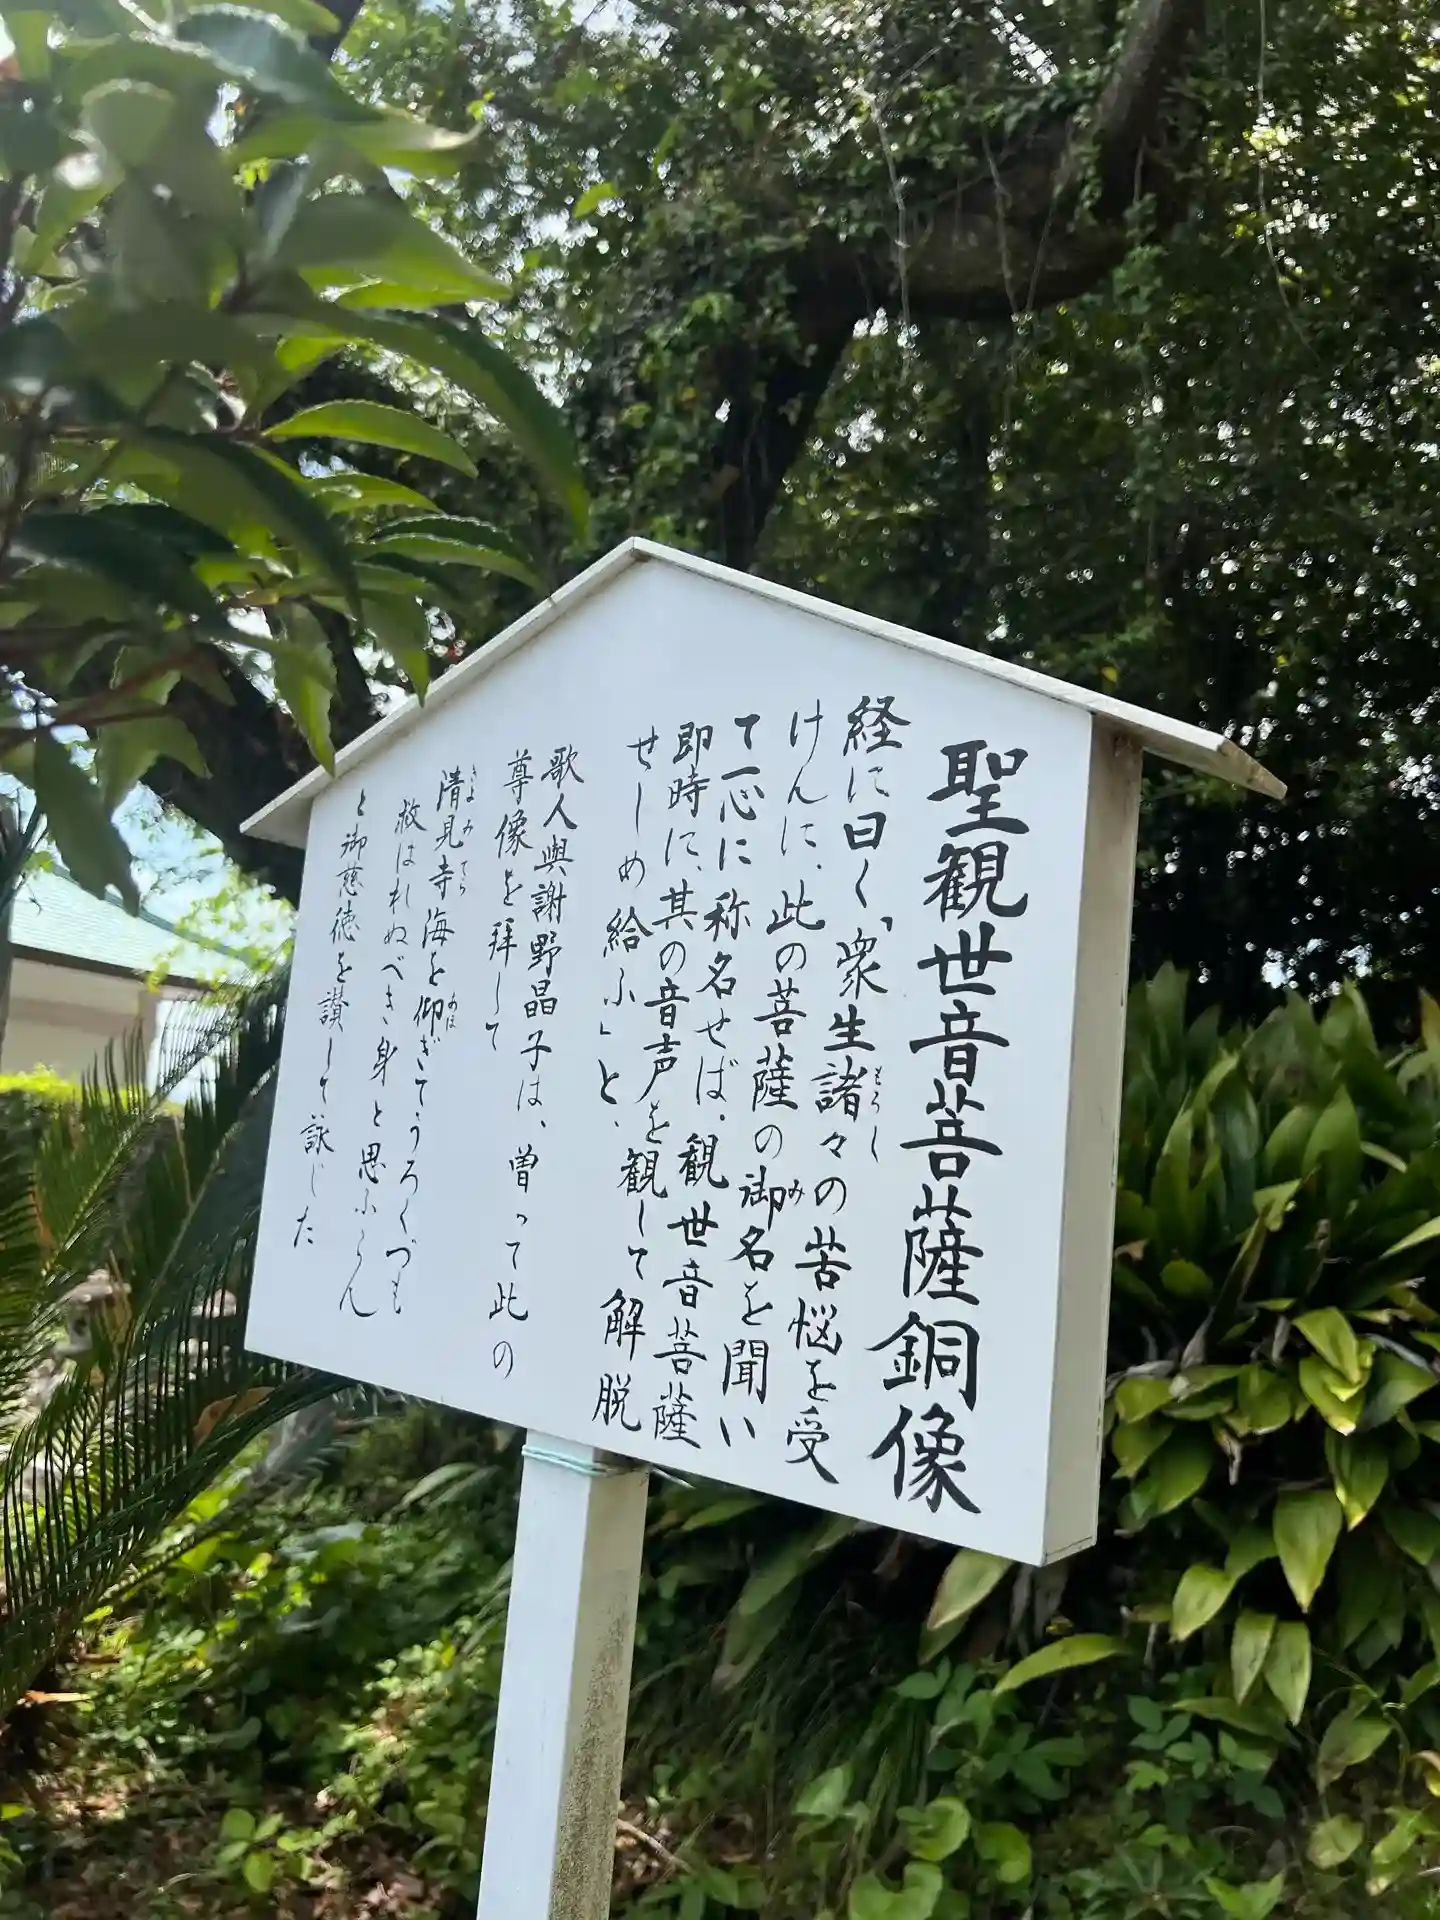 聖観世音菩薩銅像
経に曰く「衆生諸々の苦悩を受
もろもろ
けんに、此の菩薩の御名を聞い
み
て一心に称名せば、観世音菩薩
即時に、其の音声を観して解脱
せしめ給ふ」と、
歌人與謝野晶子は、曽って此の
尊像を拝して
清見寺海を仰ぎてうろくづも
きよみでら
あほ
救はれぬべき身と思ふらん
と御慈徳を讃して詠じた